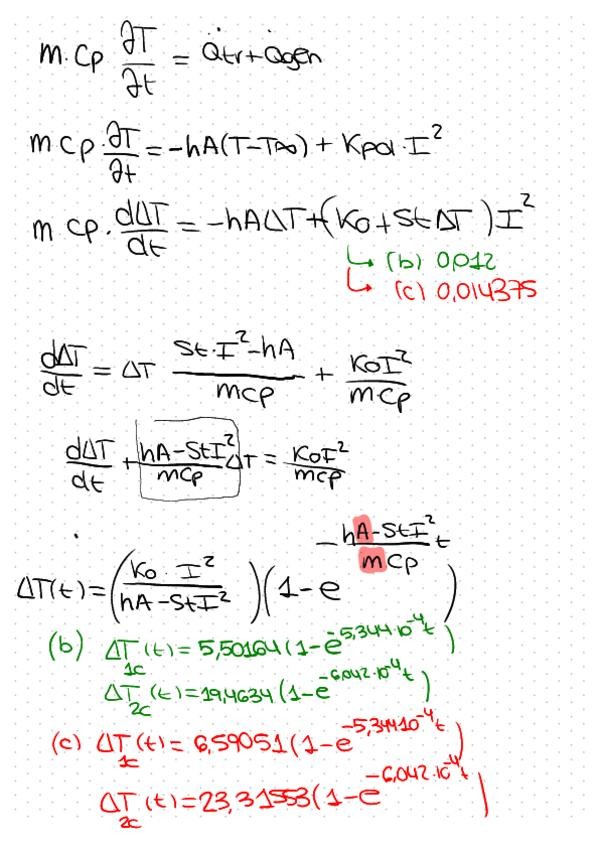 m·Cp ∂T/∂t = Q̇tr + Q̇gen
m cp · ∂T/∂t = -hA(T-T∞) + Kpol·I²
m cp · dΔT/dt = -hAΔT + (Ko + StΔT)I²
↳ (b) 0,012
↳ (c) 0,014375
dΔT/dt = ΔT (St·I²-hA)/(mcp) + (KoI²)/(m·Cp)
dΔT/dt + (hA-StI²)/(mcp) ΔT = (KoI²)/(mcp)
ΔT(t) = ((Ko·I²)/(hA-StI²))(1-e^(-(hA-StI²)/(mCp) t))
(b) ΔT₁c(t) = 5,50164(1-e^(-5,344·10⁻⁴t))
ΔT₂c(t) = 19,4634(1-e^(-6,042·10⁻⁴t))
(c) ΔT₁c(t) = 6,59051(1-e^(-5,344·10⁻⁴t))
ΔT₂c(t) = 23,31553(1-e^(-6,042·10⁻⁴t))